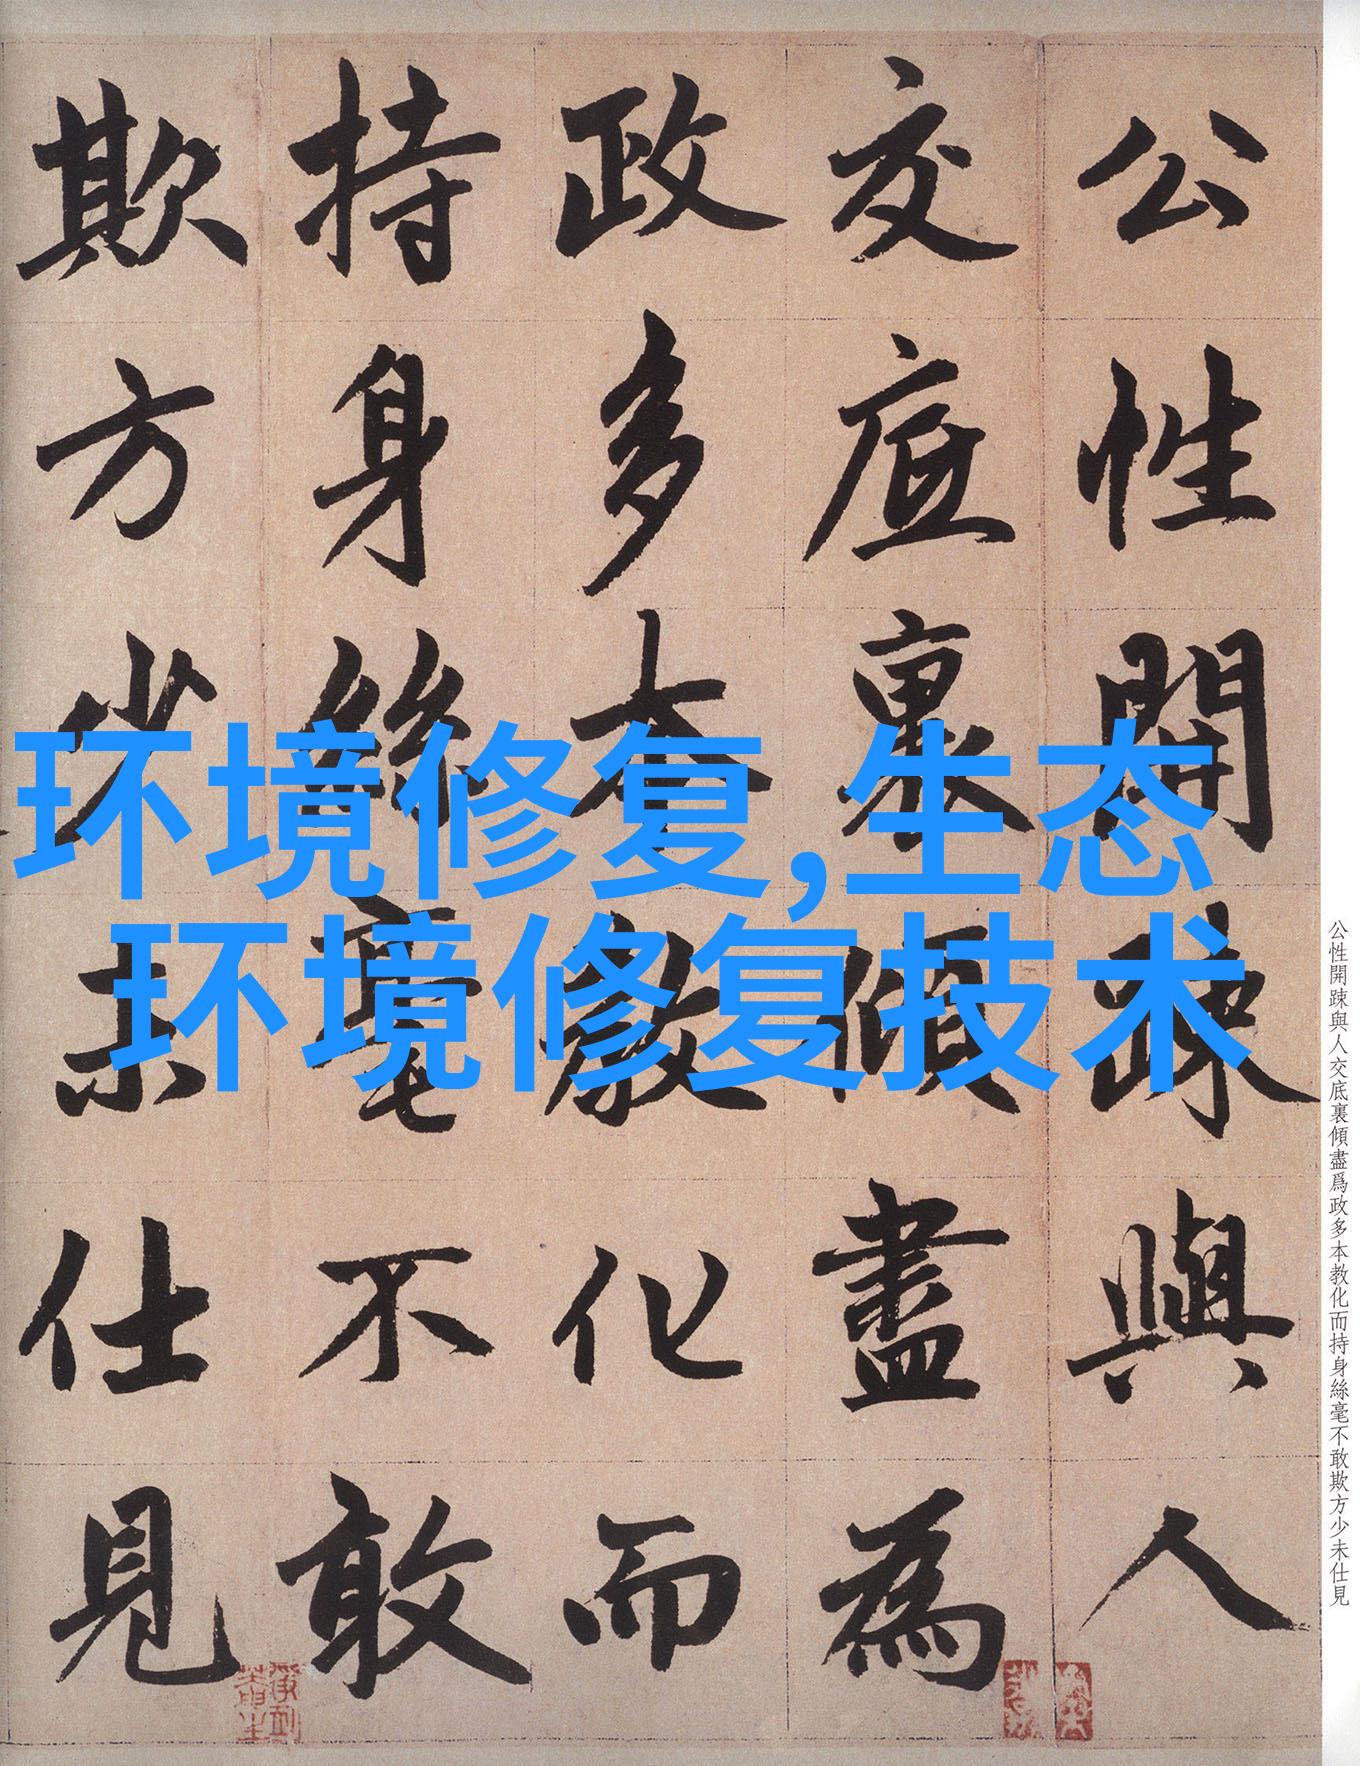 公性開踈與人
交底裏傾盡為
政多本教化而
持身絲毫不敢
欺方少未仕見
环境修复,生态
环境修复技术
公性開踈與人交底裏傾盡爲政多本教化而持身絲毫不敢欺方少未仕見